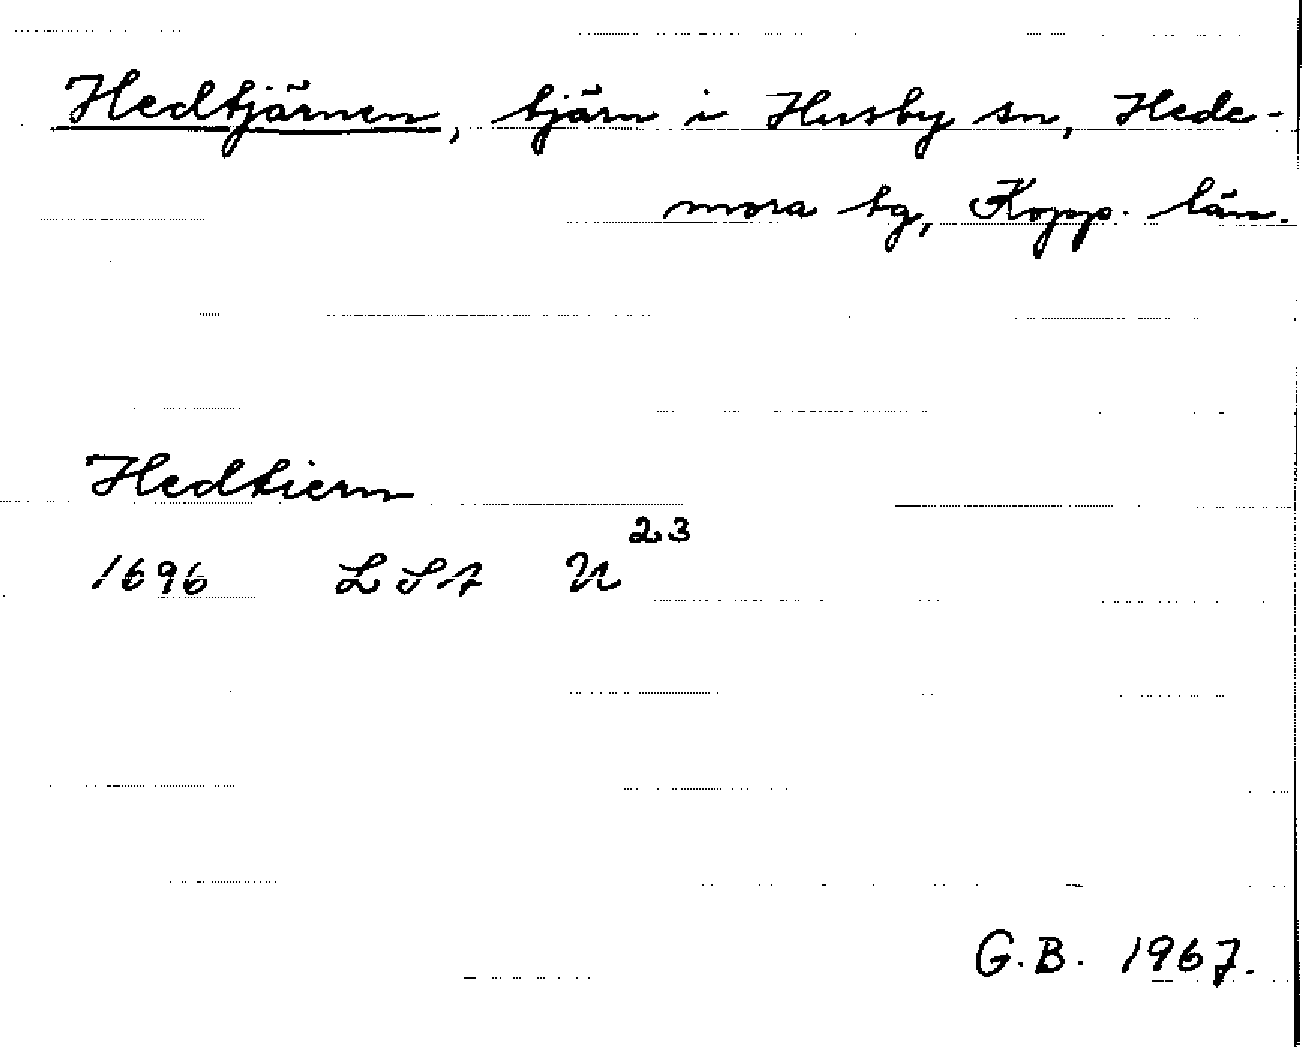 Hedtjärnen, tjärn i Husby sn, Hede-
mora tg, Kopp. län.
Hedtiern
1696 LSA U²³
G.B. 1967.